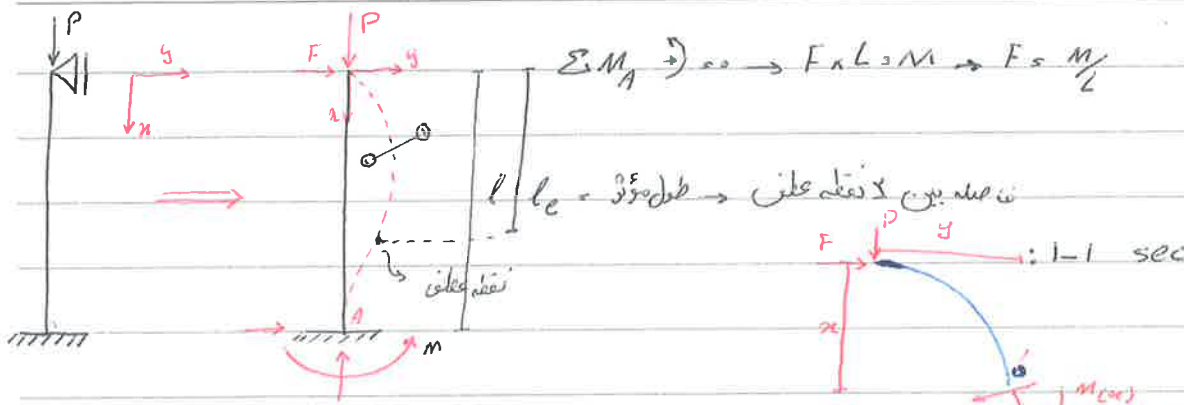 P
y
x
P
F
y
x
ΣM_A ↷ = 0 → F × L = M → F = M/L
l
l_e = طول مؤثر → فاصله بین 2 نقطه عطف
نقطه عطف
A
M
1-1 sec :
F
P
y
x
M(x)